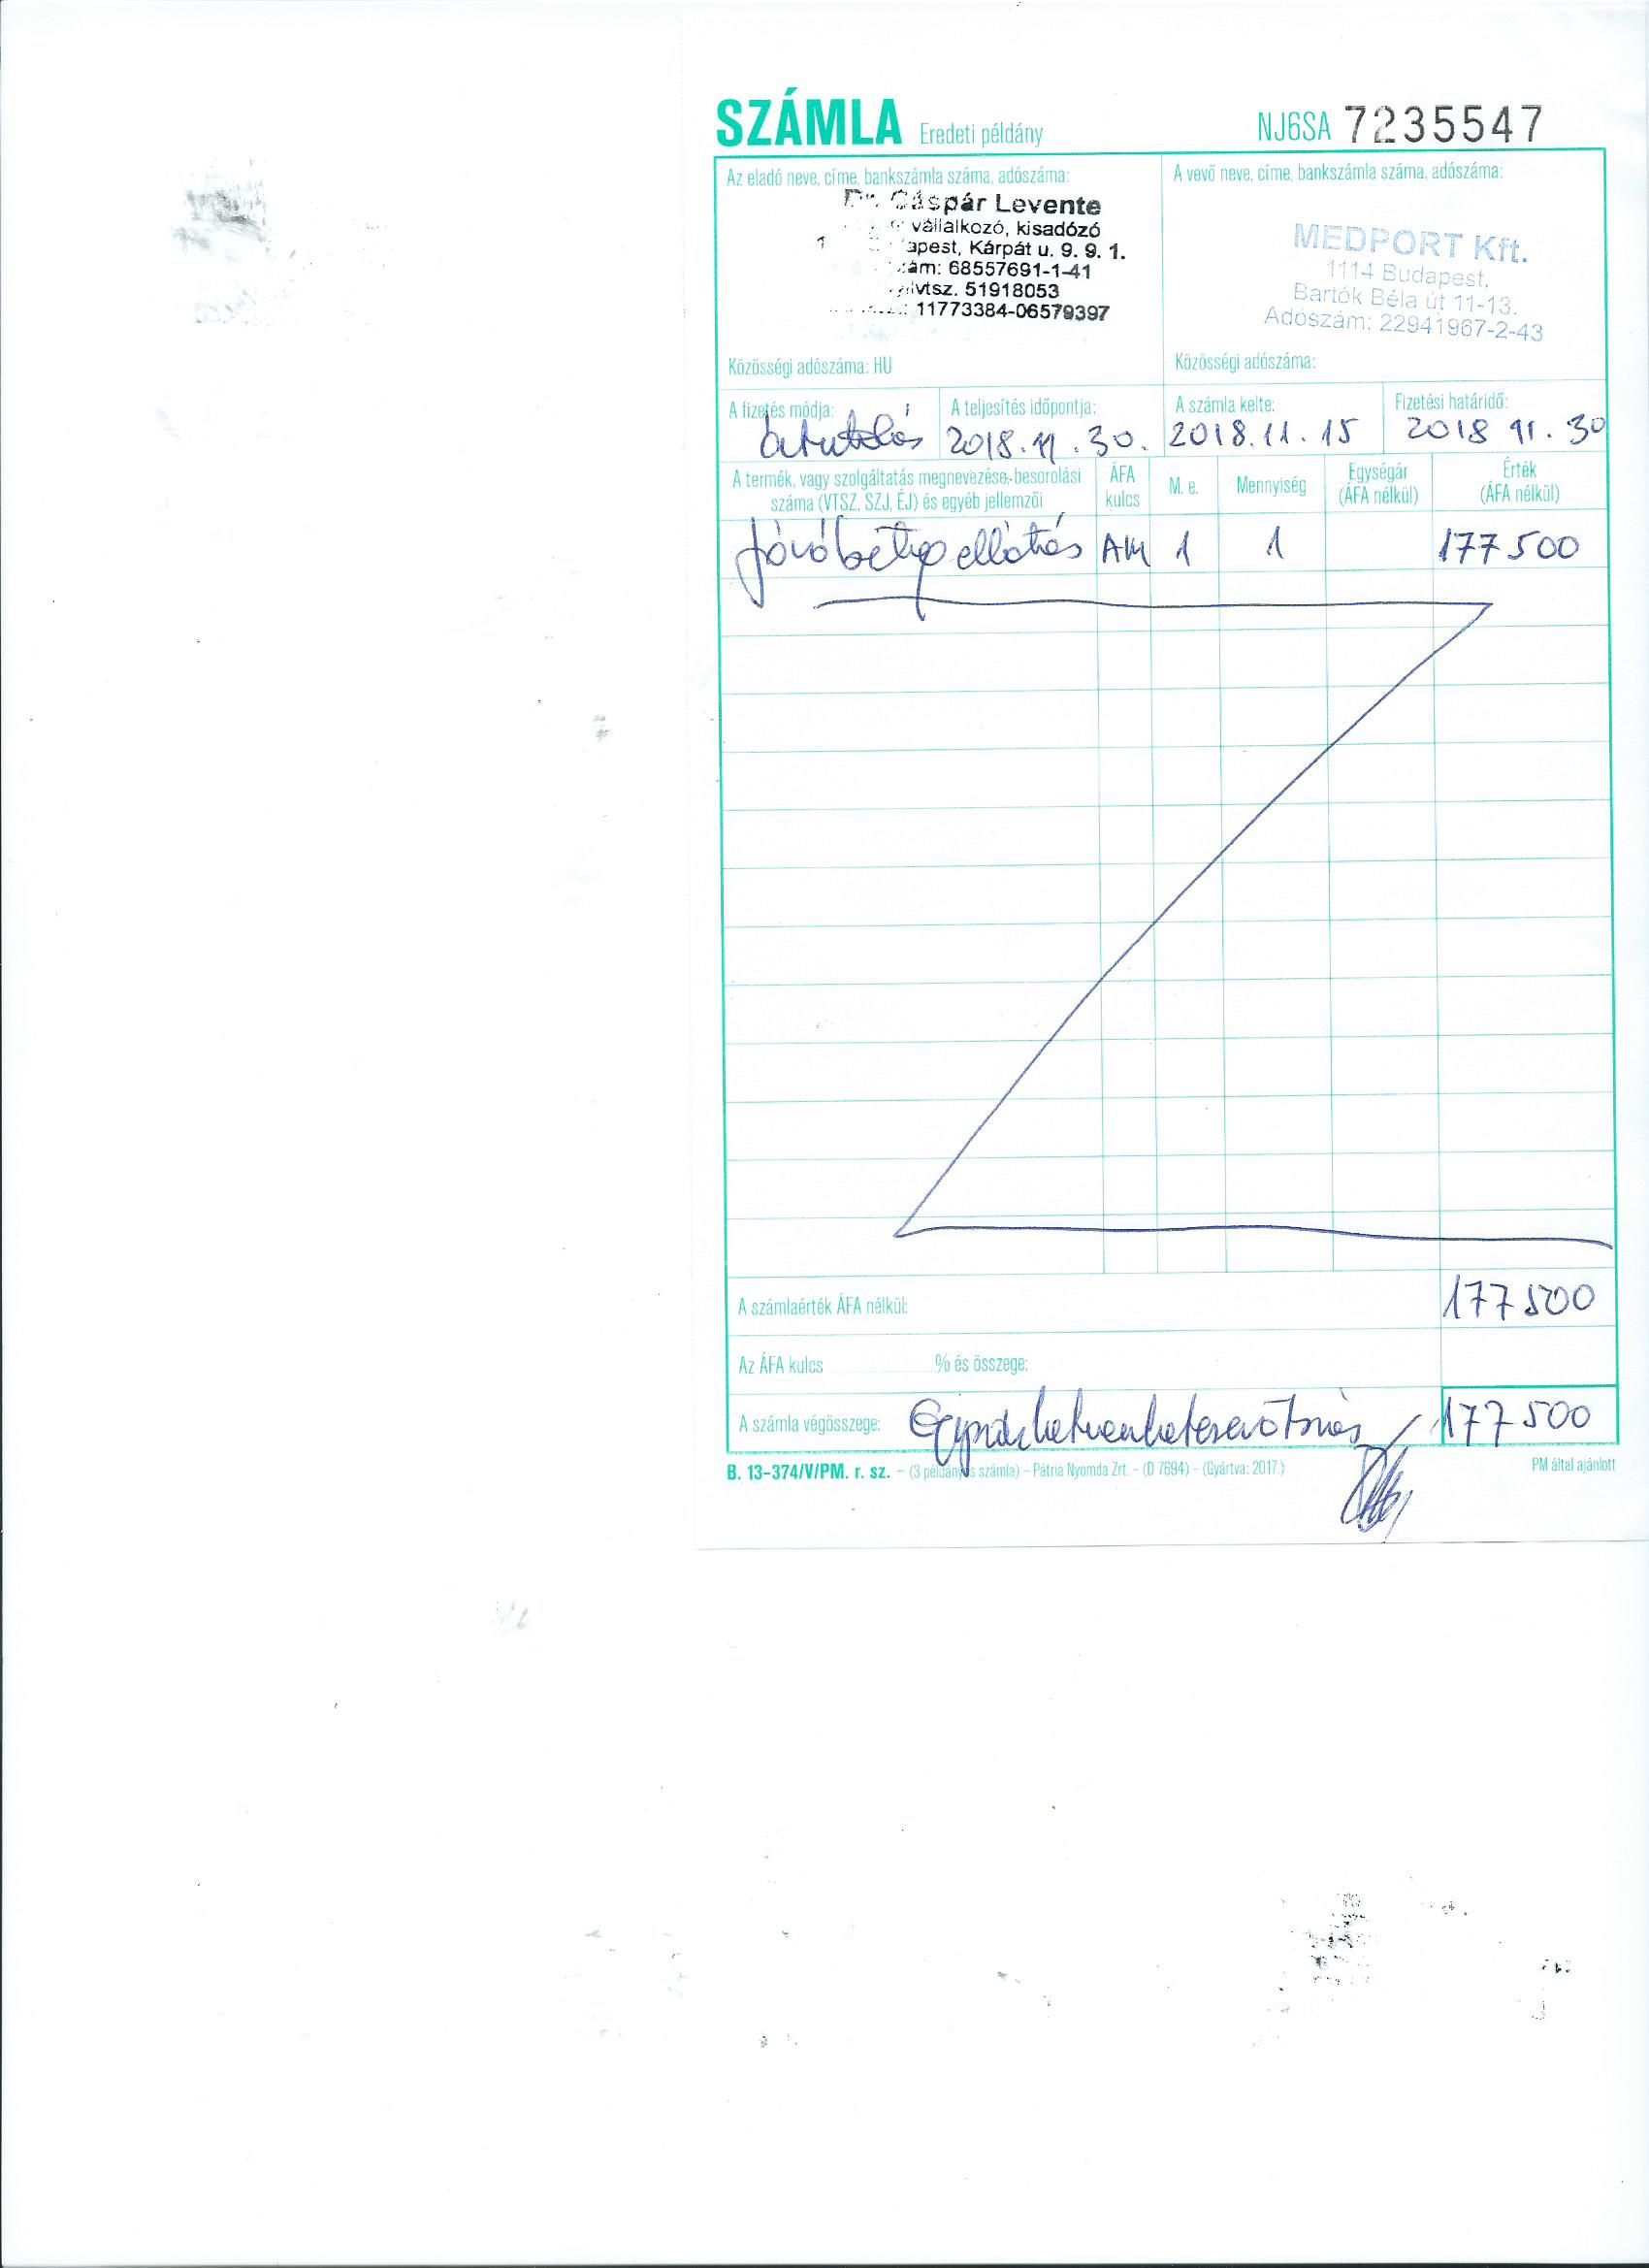 SZÁMLA Eredeti példány NJ6SA 7235547
Az eladó neve, címe, bankszámla száma, adószáma:
Dr. Gáspár Levente
vállalkozó, kisadózó
apest, Kárpát u. 9. 9. 1.
ám: 68557691-1-41
nyivtsz. 51918053
11773384-06579397
Közösségi adószáma: HU
A vevő neve, címe, bankszámla száma, adószáma:
MEDPORT Kft.
1114 Budapest,
Bartók Béla út 11-13.
Adószám: 22941967-2-43
Közösségi adószáma:
A fizetés módja: A teljesítés időpontja: A számla kelte: Fizetési határidő:
átutalás 2018.11.30. 2018.11.15 2018 11.30
A termék, vagy szolgáltatás megnevezése, besorolási
száma (VTSZ, SZJ, ÉJ) és egyéb jellemzői
ÁFA
kulcs
M. e.
Mennyiség
Egységár
(ÁFA nélkül)
Érték
(ÁFA nélkül)
Járóbeteg ellátás AM 1 1 177500
A számlaérték ÁFA nélkül: 177500
Az ÁFA kulcs % és összege:
A számla végösszege: Egyszázhetvenhétezerötszáz 177500
B. 13-374/V/PM. r. sz. – (3 példányos számla) – Pátria Nyomda Zrt. – (D 7694) – (Gyártva: 2017.) PM által ajánlott